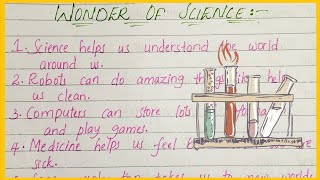 WONDER OF SCIENCE:-
1. Science helps us understand the world
around us.
2. Robots can do amazing things like help
us clean.
3. Computers can store lots
and play games.
4. Medicine helps us feel
sick.
takes us to new worlds